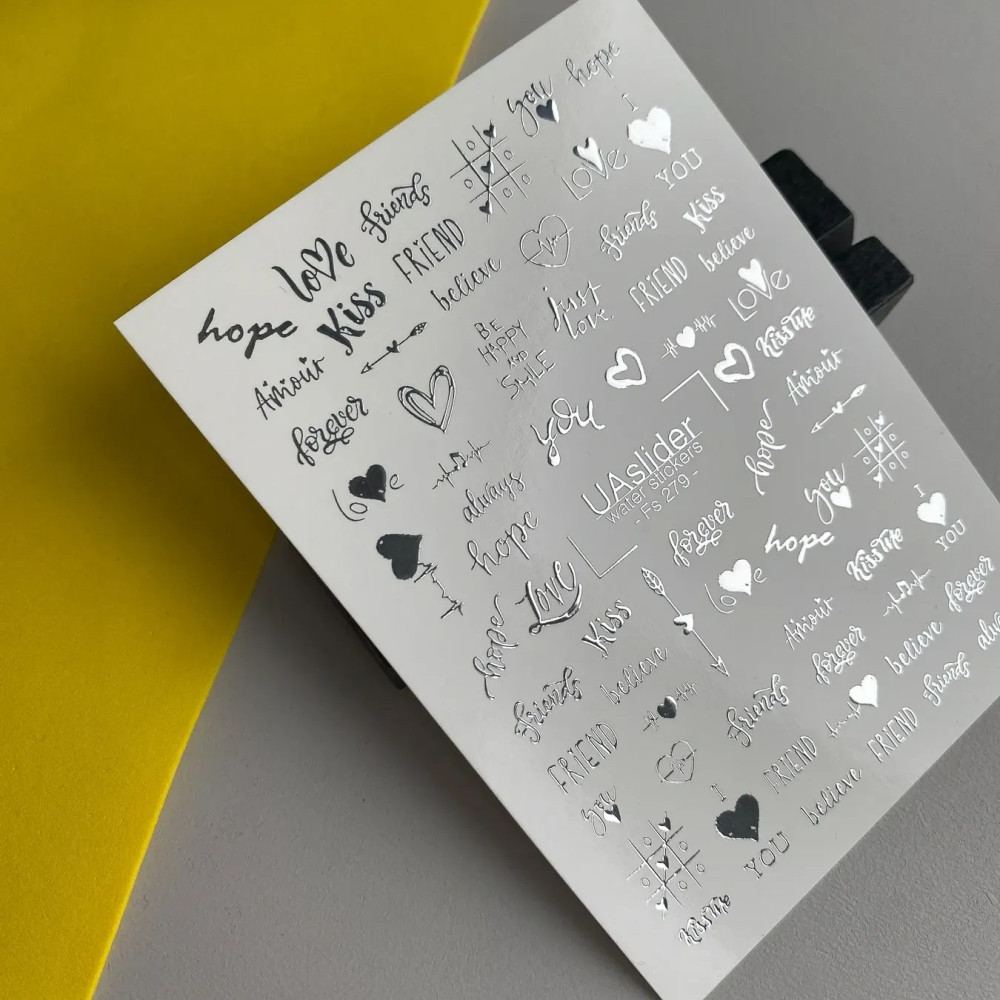 hope
you
I
YOU
Love
Friends
FRIEND
love
Kiss
hope
Amour
forever
believe
Friends
Kiss
believe
FRIEND
Just
Love
BE
HAPPY
AND
SMILE
Love
Kiss Me
Amour
you
hope
UAslider
water stickers
- Fs 279 -
love
always
hope
forever
you
hope
Kiss Me
I
YOU
love
LOVE
Kiss
hope
believe
Friends
FRIEND
Amour
forever
forever
believe
Friends
Friends
FRIEND
FRIEND
believe
you
I
YOU
Kiss Me